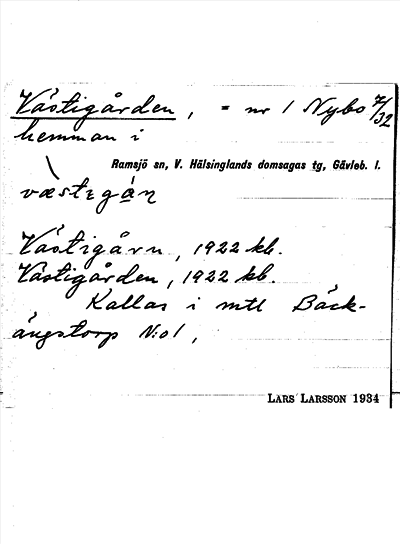 Västigården, = nr 1 Nybo 7/32
hemman i
Ramsjö sn, V. Hälsinglands domsagas tg, Gävleb. l.
væstɩgàn̥
Västigårn, 1922 kb.
Västigården, 1922 kb.
Kallas i mtl Bäck-
ängstorp N:o 1,
LARS LARSSON 1934